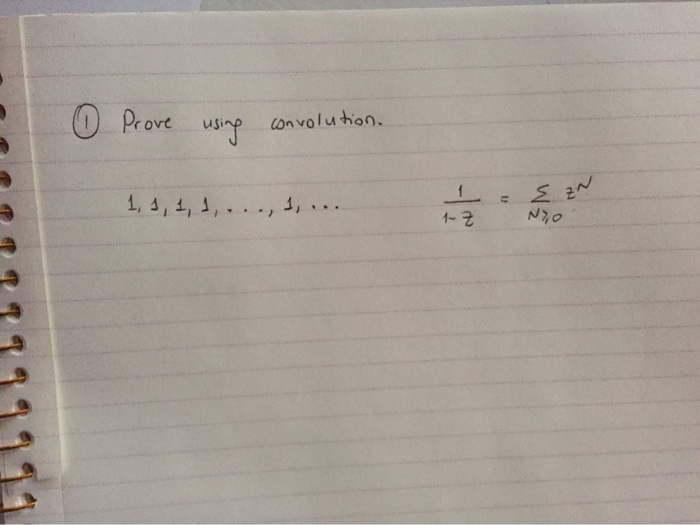 ① Prove using convolution.
1, 1, 1, 1, . . ., 1, ... 1/1-z = Σ N≥0 z^N